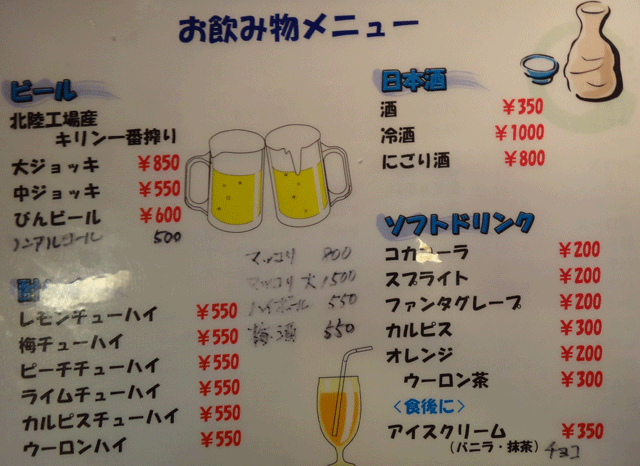 お飲み物メニュー
ビール
北陸工場産
キリン一番搾り
大ジョッキ ￥850
中ジョッキ ￥550
びんビール ￥600
ノンアルコール 500
レモンチューハイ ￥550
梅チューハイ ￥550
ピーチチューハイ ￥550
ライムチューハイ ￥550
カルピスチューハイ ￥550
ウーロンハイ ￥550
マッコリ 800
マッコリ 大 1500
ハイボール 550
梅酒 550
日本酒
酒 ￥350
冷酒 ￥1000
にごり酒 ￥800
ソフトドリンク
コカコーラ ￥200
スプライト ￥200
ファンタグレープ ￥200
カルピス ￥300
オレンジ ￥200
ウーロン茶 ￥300
＜食後に＞
アイスクリーム ￥350
（バニラ・抹茶） チョコ